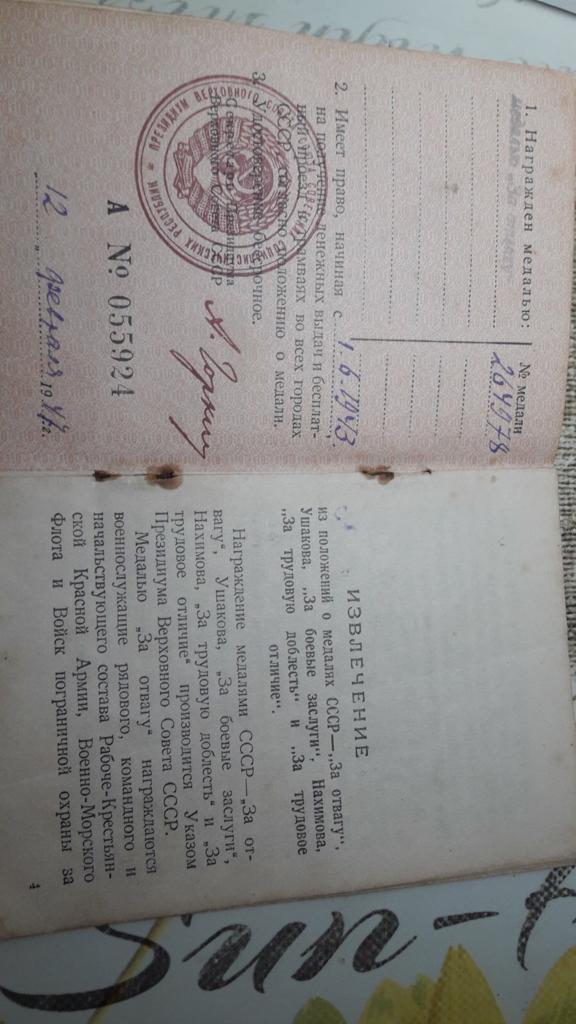 1. Награжден медалью:
№ медали
медалью „За отвагу"
264978
2. Имеет право, начиная с 1.6.1943
на получение денежных выдач и бесплат-
ный проезд в трамваях во всех городах
СССР, согласно положению о медали.
3. Удостоверение бессрочное.
Секретарь Президиума
Верховного Совета СССР
А. Горкин
ПРЕЗИДИУМ ВЕРХОВНОГО СОВЕТА СОЮЗА СОВЕТСКИХ СОЦИАЛИСТИЧЕСКИХ РЕСПУБЛИК
А № 055924
12 февраля 1947 г.
ИЗВЛЕЧЕНИЕ
из положений о медалях СССР—„За отвагу",
Ушакова, „За боевые заслуги", Нахимова,
„За трудовую доблесть" и „За трудовое
отличие".
Награждение медалями СССР—„За от-
вагу", Ушакова, „За боевые заслуги",
Нахимова, „За трудовую доблесть" и „За
трудовое отличие" производится Указом
Президиума Верховного Совета СССР.
Медалью „За отвагу" награждаются
военнослужащие рядового, командного и
начальствующего состава Рабоче-Крестьян-
ской Красной Армии, Военно-Морского
Флота и Войск пограничной охраны за
4
Sun-